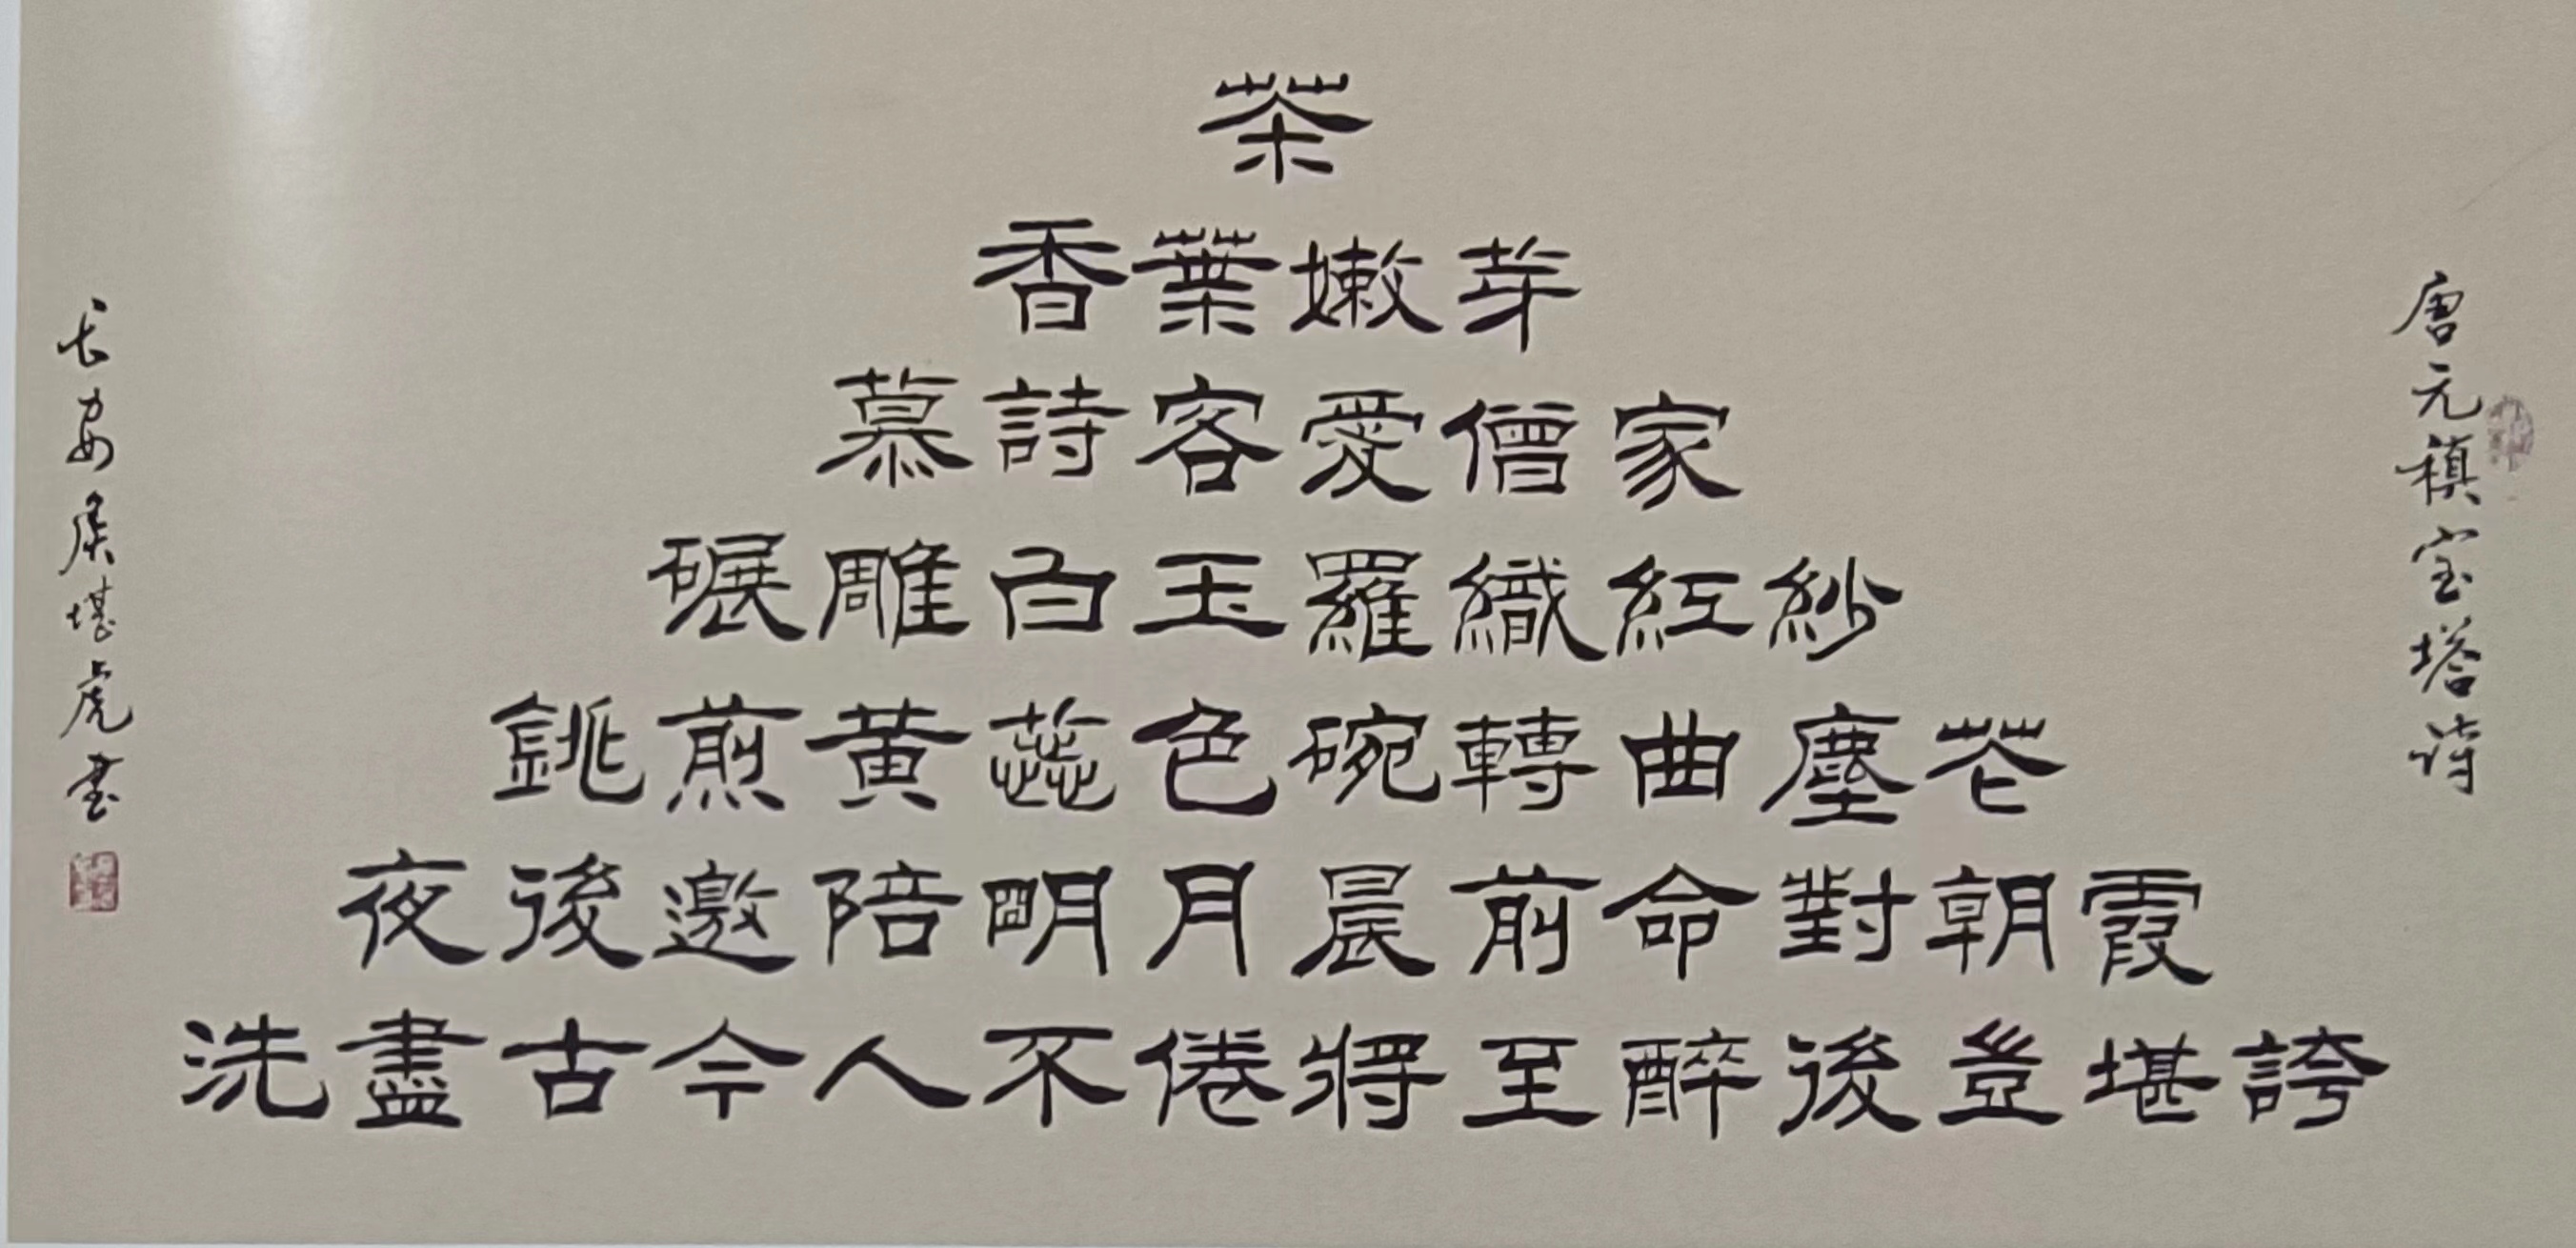 唐元稹宝塔诗
茶
香葉嫩芽
慕詩客愛僧家
碾雕白玉羅織紅紗
銚煎黄蕊色碗轉曲塵花
夜後邀陪明月晨前命對朝霞
洗盡古今人不倦將至醉後豈堪誇
长安侯堪虎书